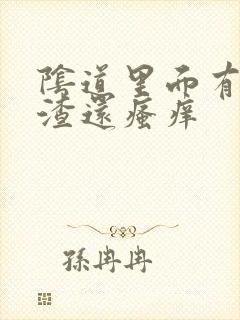 陰道里面有
渣還瘙癢
孫冉冉